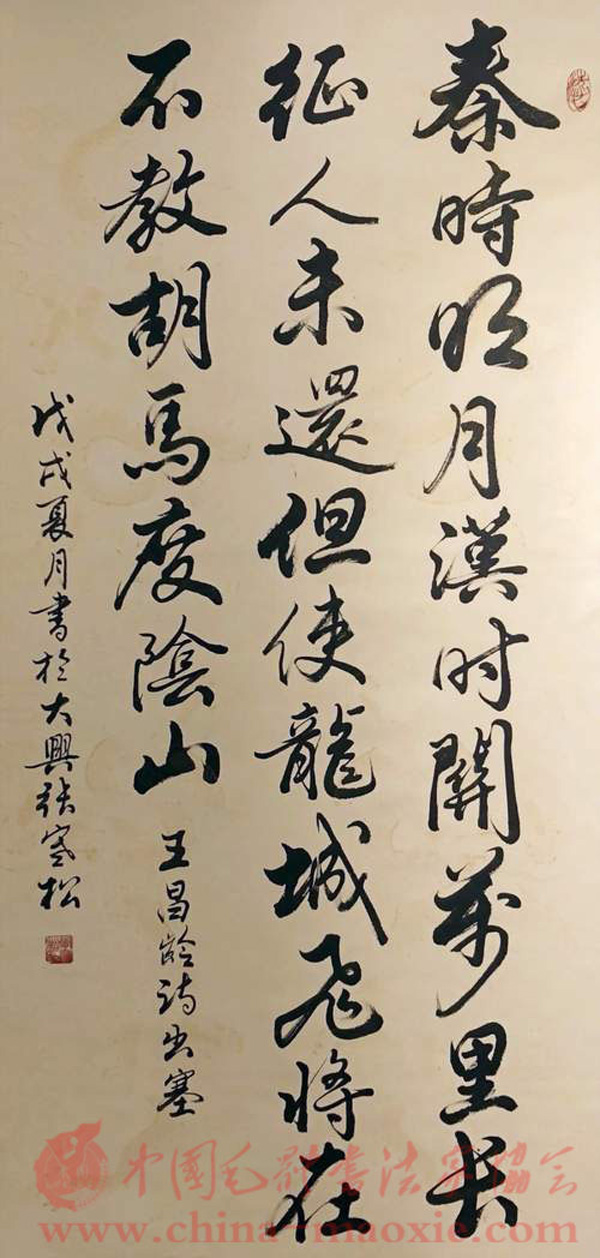 秦時明月漢时關萬里長
征人未還但使龍城飛將在
不教胡馬度陰山 王昌龄诗出塞
戊戌夏月書於大興張寒松
中國毛體書法家協会
www.china-maoxie.com